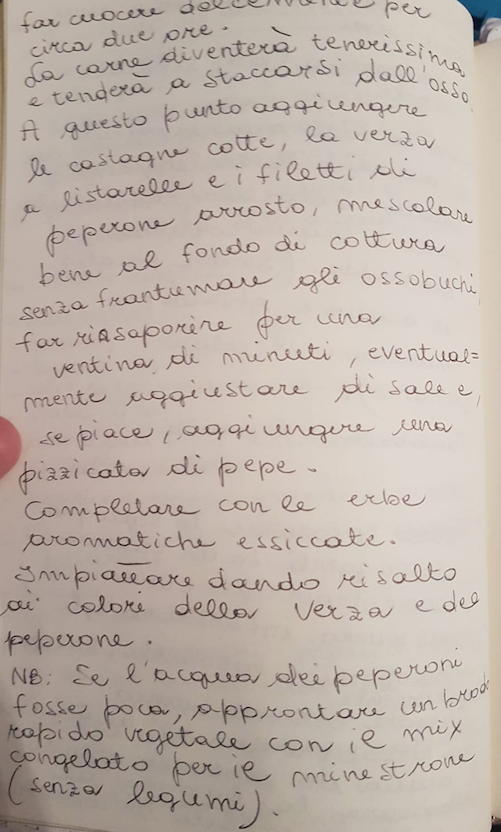 far cuocere dolcemente per
circa due ore.
La carne diventerà tenerissima
e tenderà a staccarsi dall'osso.
A questo punto aggiungere
le castagne cotte, la verza
a listarelle e i filetti di
peperone arrosto, mescolare
bene al fondo di cottura
senza frantumare gli ossobuchi,
far riasaporire per una
ventina di minuti, eventual=
mente aggiustare di sale e,
se piace, aggiungere una
pizzicata di pepe.
Completare con le erbe
aromatiche essiccate.
Impiattare dando risalto
ai colori della verza e del
peperone.
NB: Se l'acqua dei peperoni
fosse poca, approntare un brodo
rapido vegetale con il mix
congelato per il minestrone
(senza legumi).